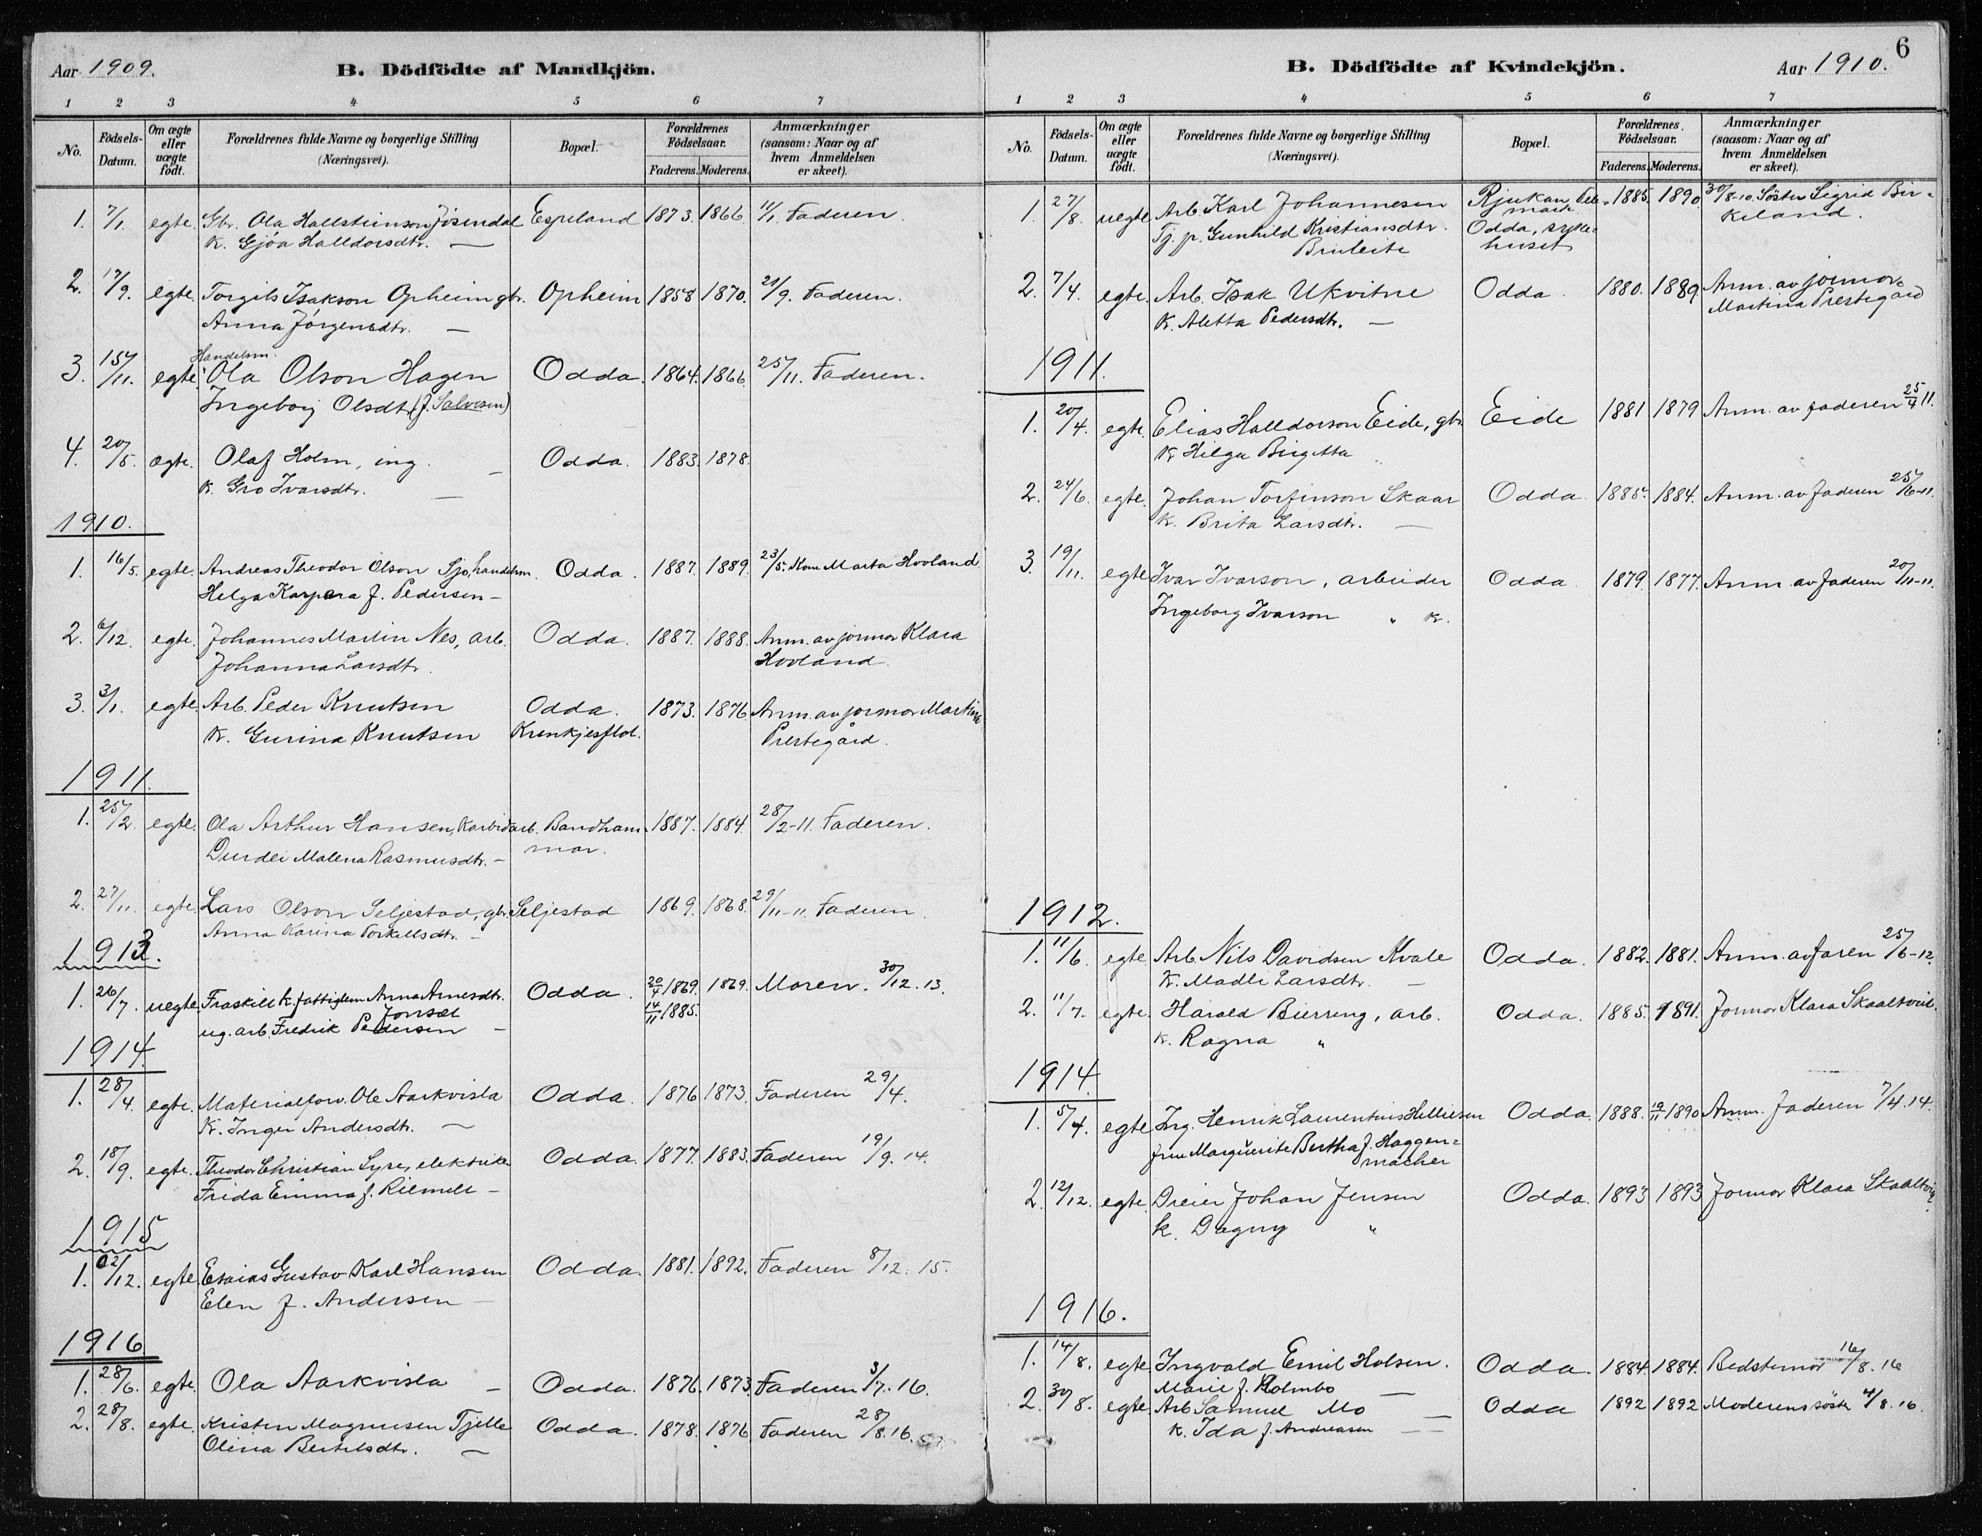 Aar 1909.
B. Dödfödte af Mandkjön.
1 2 3 4 5 6 7
No.
Födsels-Datum.
Om ægte eller uægte födt.
Forældrenes fulde Navne og borgerlige Stilling (Næringsvei).
Bopæl.
Forældrenes Födselsaar.
Faderens. Moderens.
Anmærkninger (saasom: Naar og af hvem Anmeldelsen er skeet).
1. 7/1 egte. Gbr. Ola Hallsteinson Jösendal Espeland 1873. 1866 11/1 Faderen.
K. Gjóa Halldorsdtr. —
2. 17/9. egte. Torgils Isakson Opheim gbr. Opheim 1858 1870. 21/9. Faderen.
Anna Jørgensdtr. —
Handelsm.
3. 15/11. egte. Ola Olson Hagen Odda. 1864. 1866. 25/11. Faderen.
Ingeborg Olsdtr. (f. Salvesen)
4. 20/5. ægte. Olaf Holm, ing. — Odda. 1883. 1878.
K. Gro Ivarsdtr. —
1910.
1. 16/5. egte. Andreas Theodor Olson Sjo, handelsm. Odda. 1887. 1889. 23/5. Kone Marta Hovland.
Helga Kaspara f. Pedersen —
2. 6/12. egte. Johannes Martin Nes, arb. Odda. 1887. 1888. Anm. av jormor Klara
Johanna Larsdtr. Hovland.
3. 3/1. egte. Arb. Peder Knutsen Odda. 1873. 1876 Anm. av jormor Martina
K. Gurina Knutsen Krenkjesflot. Prestegård.
1911.
1. 25/2. egte. Ola Arthur Hansen, Karbidarb. Bandham- 1887. 1884. 28/2-11. Faderen.
Durdei Malena Rasmusdtr. — mar.
2. 27/11. egte. Lars Olson Seljestad, gbr. Seljestad 1869. 1868. 29/11-11. Faderen.
Anna Karina Torkellsdtr. —
1913.
1. 26/7. uegte. Fraskilt k. fattiglem Anna Arnesdtr. Odda. 22/4 1869. 1869. Moren. 30/12. 13.
Jonsæt
ug. arb. Fredrik Pedersen — 14/11 1885.
1914.
1. 28/4. egte. Materialforv. Ole Aarkvisla Odda. 1876 1873. Faderen 29/4.
K. Inger Andersdtr. —
2. 18/9. egte. Theodor Christian Syre, elektriker Odda. 1877. 1883. Faderen 19/9. 14.
Frida Emma f. Riemeli —
1915
1. 02/12. egte. Esaias Gustav Karl Hansen Odda. 1881. 1892. Faderen 8/12. 15.
Elen f. Andersen —
1916
1. 28/6. egte. Ola Aarkvisla — Odda. 1876. 1873. Faderen 3/7. 16.
2. 28/8. egte. Kristen Magnusen Tjelle Odda. 1878. 1876 Faderen 28/8. 16.
Olina Bertilsdtr. —
6
B. Dödfödte af Kvindekjön.
Aar 1910.
1 2 3 4 5 6 7
No.
Födsels-Datum.
Om ægte eller uægte födt.
Forældrenes fulde Navne og borgerlige Stilling (Næringsvei).
Bopæl.
Forældrenes Födselsaar.
Faderens. Moderens.
Anmærkninger (saasom: Naar og af hvem Anmeldelsen er skeet).
1. 27/8. uegte Arb. Karl Johannesen Rjukan, Tele- 1885. 1890. 30/8-10. Söster Sigrid Bir-
mark keland.
Tj. p. Gunhild Kristiansdtr. Odda, syke-
Bruleite huset
2. 7/4. egte. Arb. Isak Ukvitne Odda. 1880. 1889. Anm. av jormor
K. Aletta Pedersdtr. — Martina Prestegård
1911.
1. 20/4. egte. Elias Halldorson Eide, gbr. Eide 1881 1879 Anm. av faderen 25/4 11.
K. Helga Birgitta
2. 24/6. egte. Johan Torfinson Skaar Odda. 1885. 1884. Anm. av faderen 25/6-11.
K. Brita Larsdtr. —
3. 19/11. egte. Ivar Ivarson, arbeider Odda. 1879. 1877. Anm. av faderen 20/11-11.
Ingeborg Ivarson " K.
1912.
1. 11/6. egte. Arb. Nils Davidsen Kvale Odda. 1882. 1881. Anm. av faren 25/6-12.
K. Madli Larsdtr. —
2. 11/7. egte. Harald Bierreng, arb. Odda. 1885. 1891. Jormor Klara Skaaltveit.
K. Ragna "
1914.
1. 5/4. egte. Ing. Henrik Laurentius Helliesen Odda. 1888. 19/11 1890 Anm. Faderen 7/4. 14.
fru Marguerite Bertha f. Haggen-
macher
2. 12/12. egte. Dreier Johan Jensen Odda. 1893 1893 Jormor Klara Skaaltveit
k. Dagny "
1916.
1. 14/8. egte. Ingvald Emil Holsen. Odda. 1884. 1884. Bedstemor 16/8. 16
Marie f. Holmbo —
2. 30/8. egte. Arb. Samuel Mo — Odda 1892 1892 Moderens söster 4/8. 16.
K. Ida f. Andreasen —